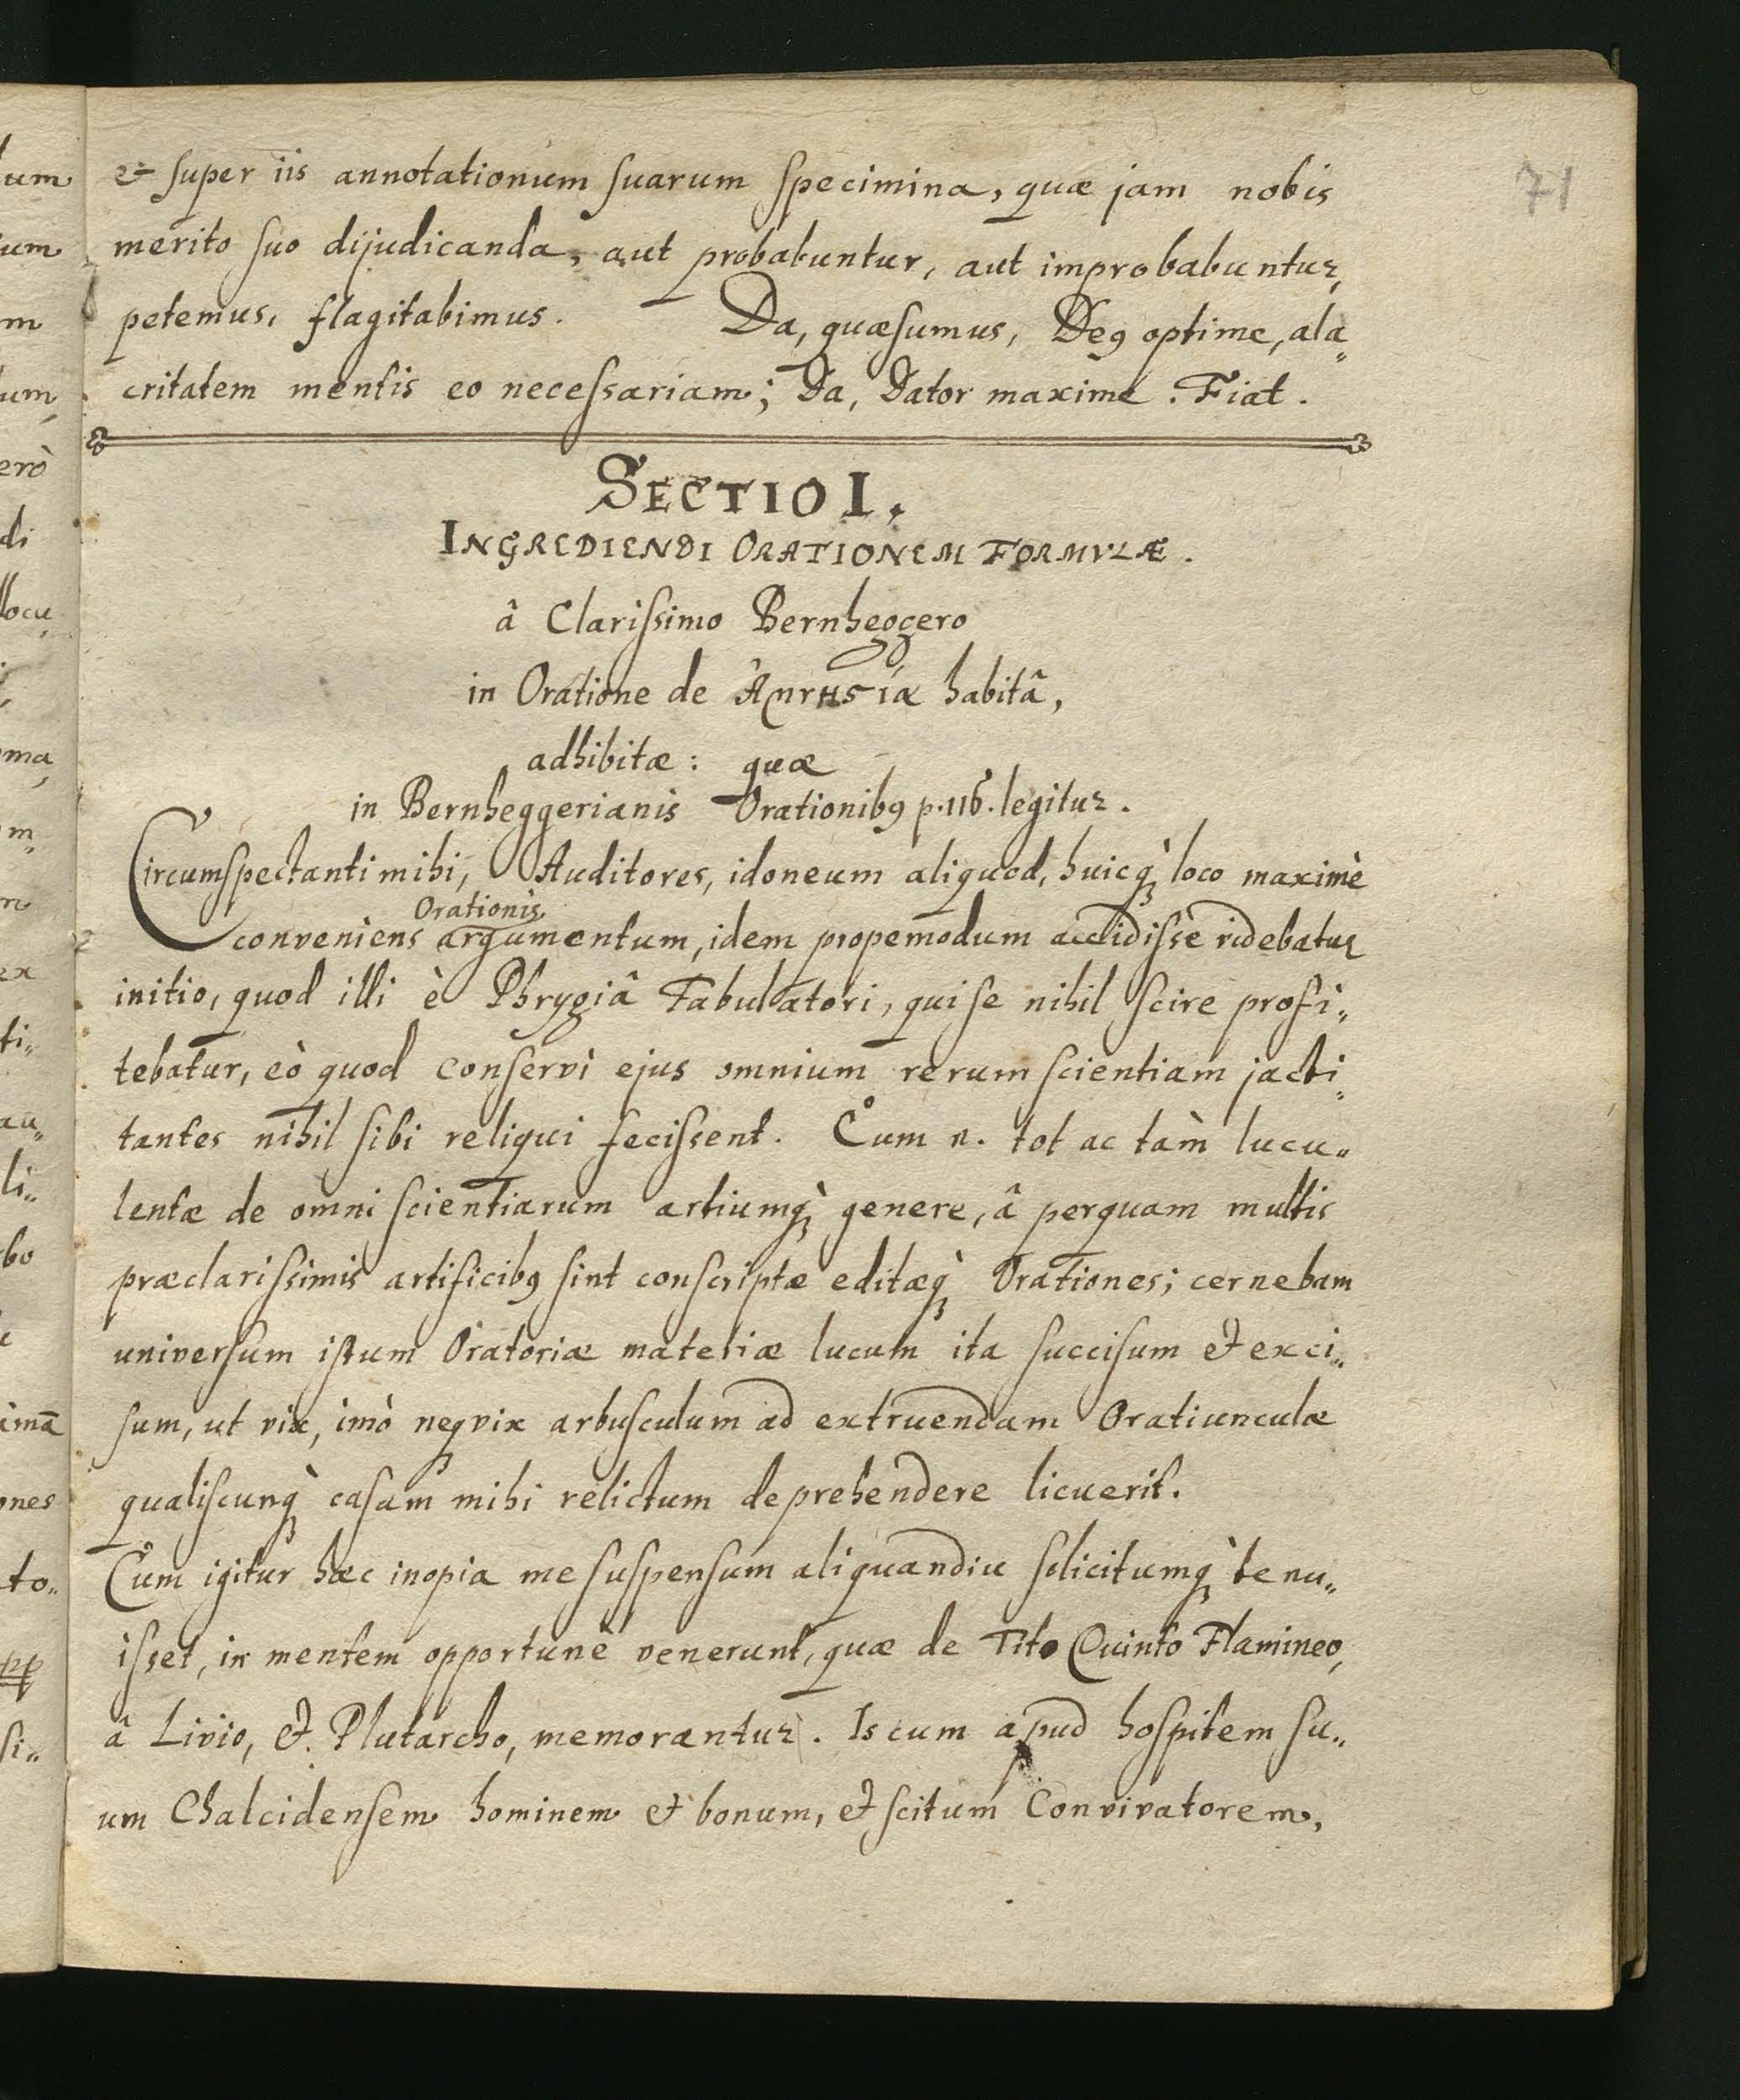 71
& super iis annotationum suarum specimina, quæ jam nobis
merito suo dijudicanda, aut probabuntur, aut improbabuntur,
petemus, flagitabimus. Da, quæsumus, Deꝰ optime, ala„
critatem mentis eo necessariam; Da, Dator maxime. Fiat.
SECTIO I.
INGREDIENDI ORATIONEM FORMVLÆ.
â Clarissimo Bernheggero
in Oratione de habitâ,
adhibitæ: quæ
in Bernheggerianis Orationibꝰ p. 116. legitur.
Circumspectanti mihi, Auditores, idoneum aliquod, huicq̀ꝫ loco maximè
Orationis
conveniens argumentum, idem propemodum accidisse videbatur
initio, quod illi è Phrygiâ Fabulatori, qui se nihil scire profi„
tebatur, eò quod conservi ejus omnium rerum scientiam jacti„
tantes nihil sibi reliqui fecissent. Cum n. tot ac tàm lucu„
lentæ de omni scientiarum artiumq̀ꝫ genere, â perquam multis
præclarissimis artificibꝰ sint conscriptæ editæq̀ꝫ Orationes; cernebam
universum istum Oratoriæ materiæ lucum ita succisum et exci„
sum, ut vix, imò neqꝫ vix arbusculum ad extruendam Oratiunculæ
qualiscunq̀ꝫ casam mihi relictum deprehendere licuerit.
Cum igitur hæc inopia me suspensum aliquandiu solicitumq̀ꝫ tenu„
isset, in mentem opportunè venerunt, quæ de Tito Quinto Flamineo,
â Livio, et Plutarcho, memorantur. Is cum apud hospitem su„
um Chalcidensem hominem et bonum, et scitum Convivatorem,